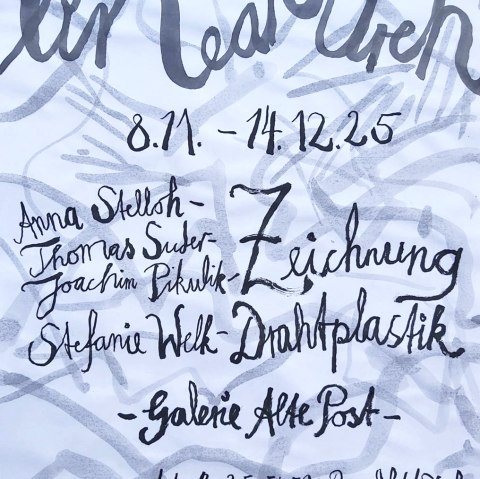 8.11. – 14.12.25
Anna Stelloh –
Thomas Suder –
Joachim Pikulik – Zeichnung
Stefanie Welk – Drahtplastik
– Galerie Alte Post –